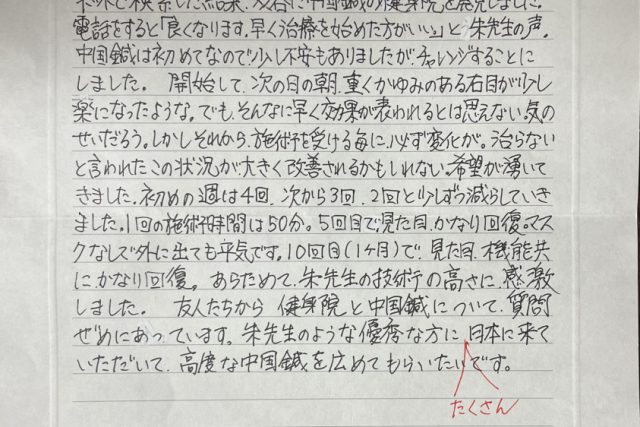 ネットで検索した結果、渋谷に中国鍼の健身院を発見しました。
電話をすると「良くなります。早く治療を始めた方がいい」と朱先生の声。
中国鍼は初めてなので少し不安もありましたが、チャレンジすることに
しました。 開始して、次の日の朝、重くかゆみのある右目が少し
楽になったような。でも、そんなに早く効果が表われるとは思えない、気の
せいだろう。しかしそれから、施術を受ける毎に、必ず変化が。治らない
と言われたこの状況が大きく改善されるかもしれない。希望が湧いて
きました。初めの週は4回、次から3回、2回と少しずつ減らしていき
ました。1回の施術時間は50分。5回目で、見た目、かなり回復。マスク
なしで外に出ても平気です。10回目(1ヶ月)で、見た目、機能共
に、かなり回復。 あらためて、朱先生の技術の高さに、感激
しました。 友人たちから 健身院と中国鍼について、質問
ぜめにあっています。朱先生のような優秀な方に、日本に来て
いただいて、高度な中国鍼を広めてもらいたいです。
たくさん